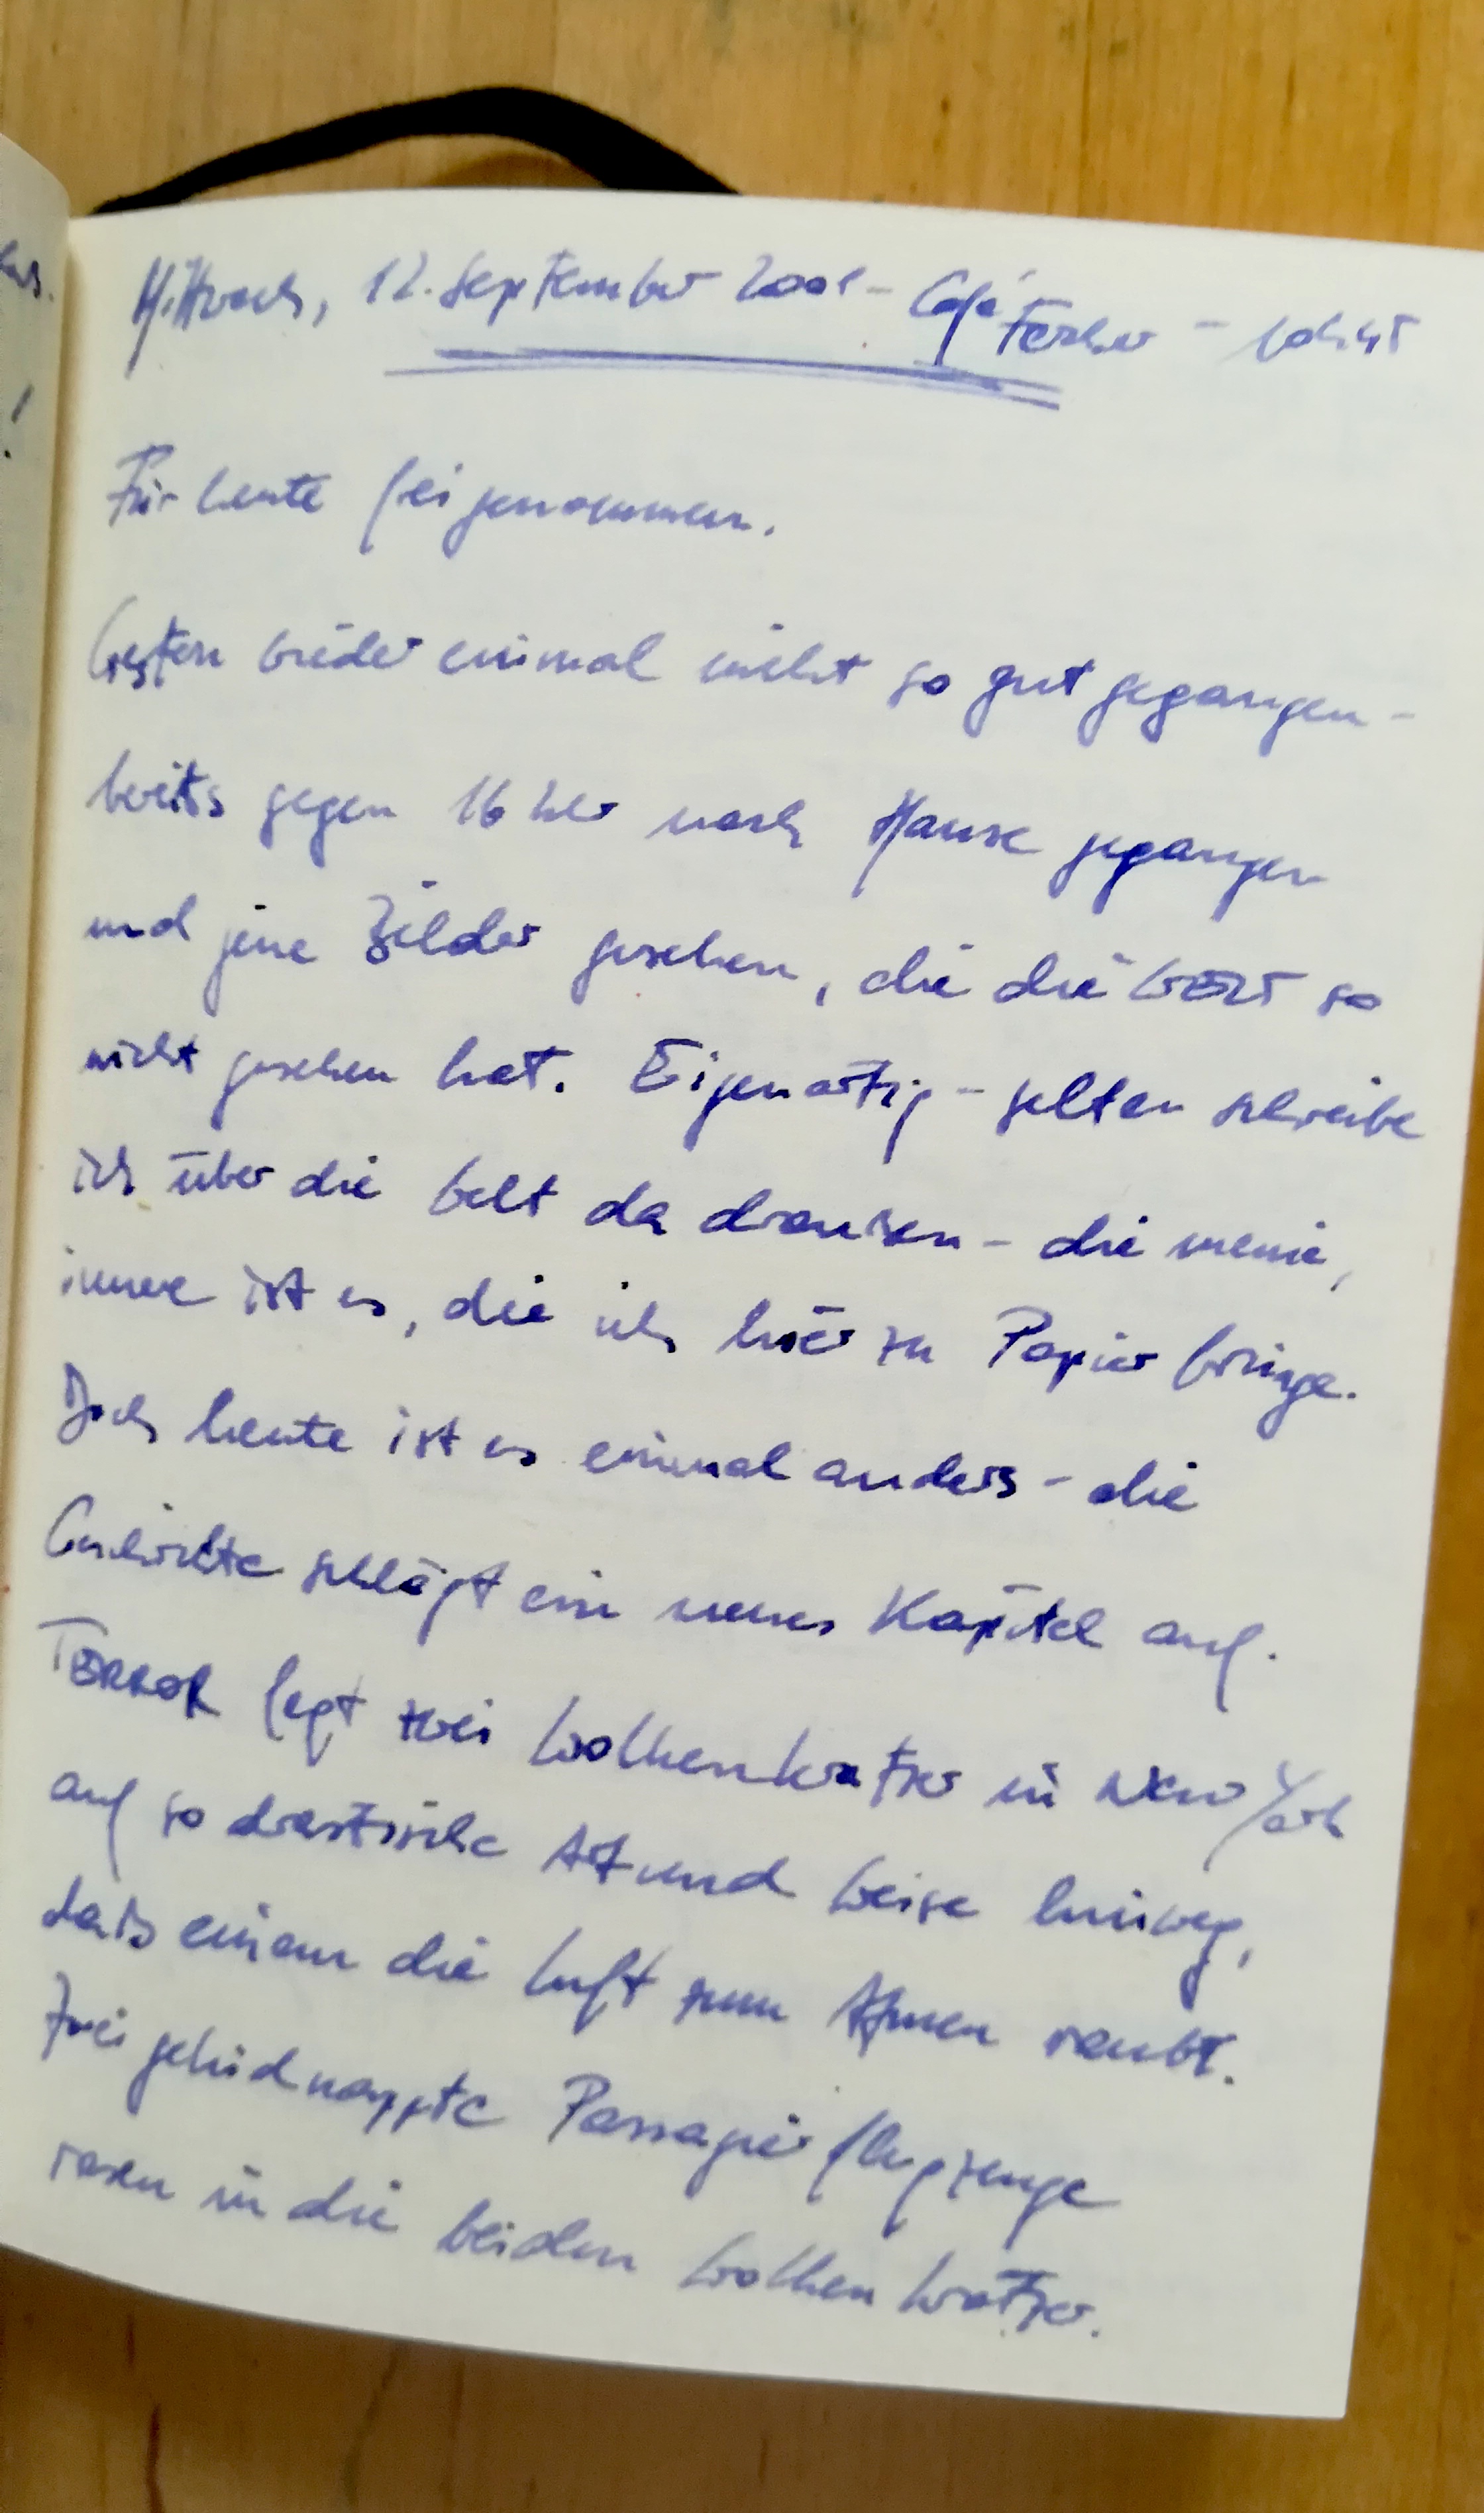 Mittwoch, 12. September 2001 - Café - 10h45
Für heute frei genommen.
Gestern wieder einmal nicht so gut gegangen -
bereits gegen 16 Uhr nach Hause gegangen
und jene Bilder gesehen, die die Welt so
nicht gesehen hat. Eigenartig - selten schreibe
ich über die Welt da draußen - die meine,
innere ist es, die ich hier zu Papier bringe.
Doch heute ist es einmal anders - die
Geschichte schlägt ein neues Kapitel auf.
TERROR fegt zwei Wolkenkratzer in New York
auf so drastische Art und Weise hinweg,
daß einem die Luft zum Atmen raubt.
Zwei gekidnappte Passagierflugzeuge
rasen in die beiden Wolkenkratzer.